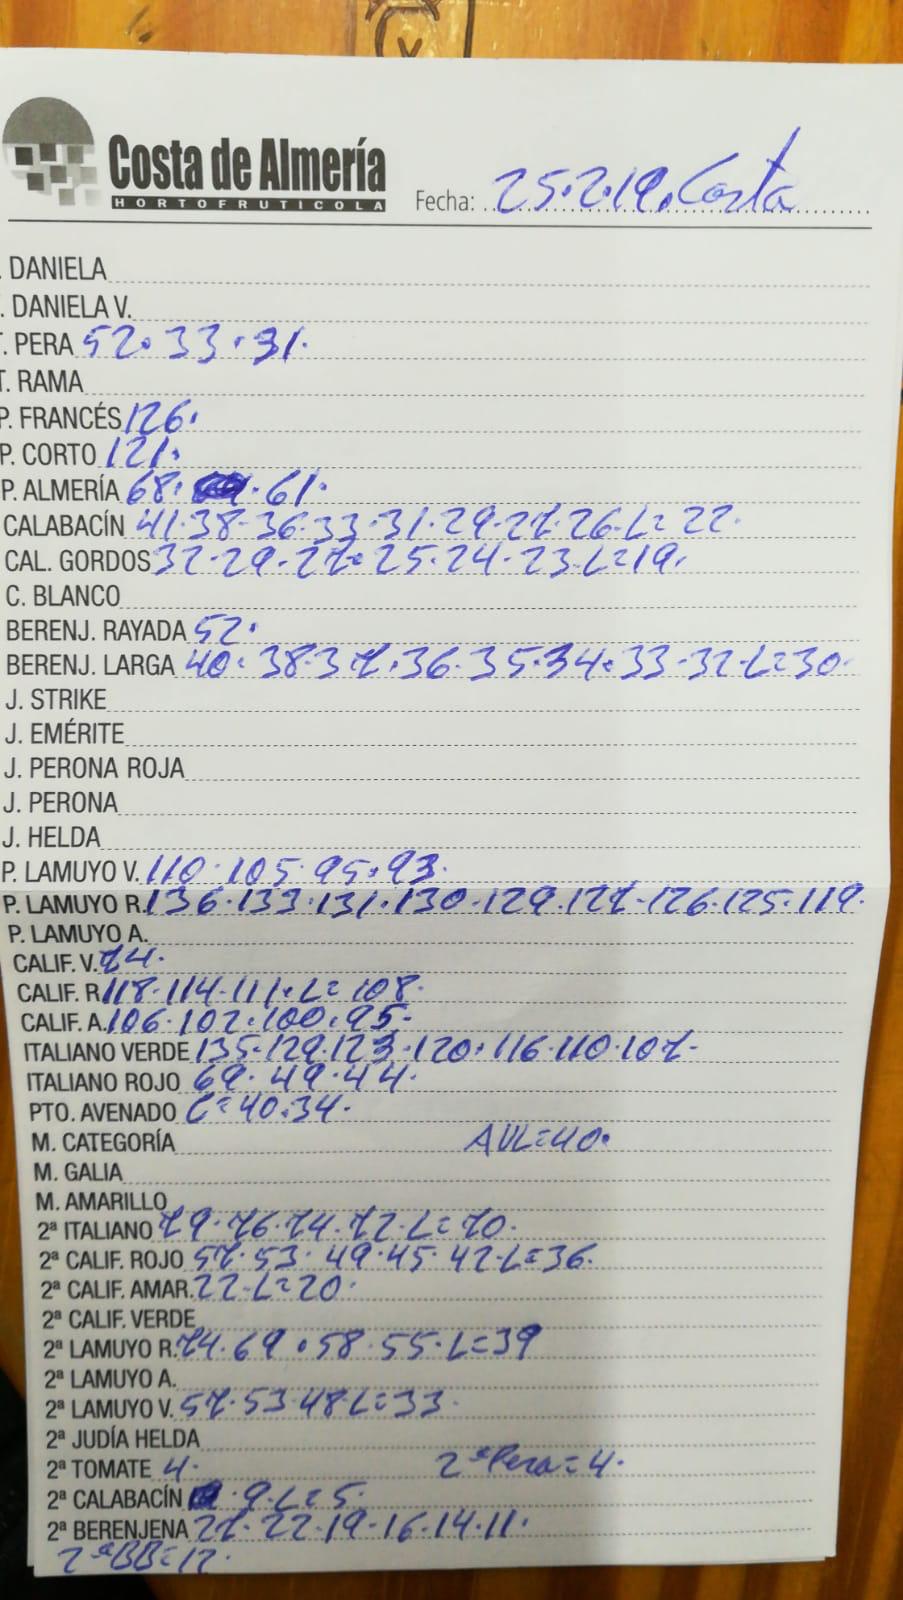 Costa de Almería
HORTOFRUTICOLA
Fecha: 25.2.19. Costa
. DANIELA
. DANIELA V.
T. PERA 52. 33. 31.
T. RAMA
P. FRANCÉS 126.
P. CORTO 121.
P. ALMERÍA 68. 61.
CALABACÍN 41.38.36.33.31.29.27.26.L=22.
CAL. GORDOS 32.29.27.25.24.23.L=19.
C. BLANCO
BERENJ. RAYADA 52.
BERENJ. LARGA 40.38.37.36.35.34.33.32.L=30.
J. STRIKE
J. EMÉRITE
J. PERONA ROJA
J. PERONA
J. HELDA
P. LAMUYO V. 110.105.95.93.
P. LAMUYO R. 136.133.131.130.129.127.126.125.119.
P. LAMUYO A.
CALIF. V. 74.
CALIF. R. 118.114.111.L=108.
CALIF. A. 106.102.100.95.
ITALIANO VERDE 135.129.123.120.116.110.107.
ITALIANO ROJO 69.49.44.
PTO. AVENADO C=40.34.
M. CATEGORÍA AVL=40.
M. GALIA
M. AMARILLO
2ª ITALIANO 79.76.74.72.L=70.
2ª CALIF. ROJO 57.53.49.45.42.L=36.
2ª CALIF. AMAR. 22.L=20.
2ª CALIF. VERDE
2ª LAMUYO R. 74.69.58.55.L=39
2ª LAMUYO A.
2ª LAMUYO V. 57.53.48.L=33.
2ª JUDÍA HELDA
2ª TOMATE 4. 2ª Pera=4.
2ª CALABACÍN . 9.L=5.
2ª BERENJENA 27.22.19.16.14.11.
2ª BB=12.